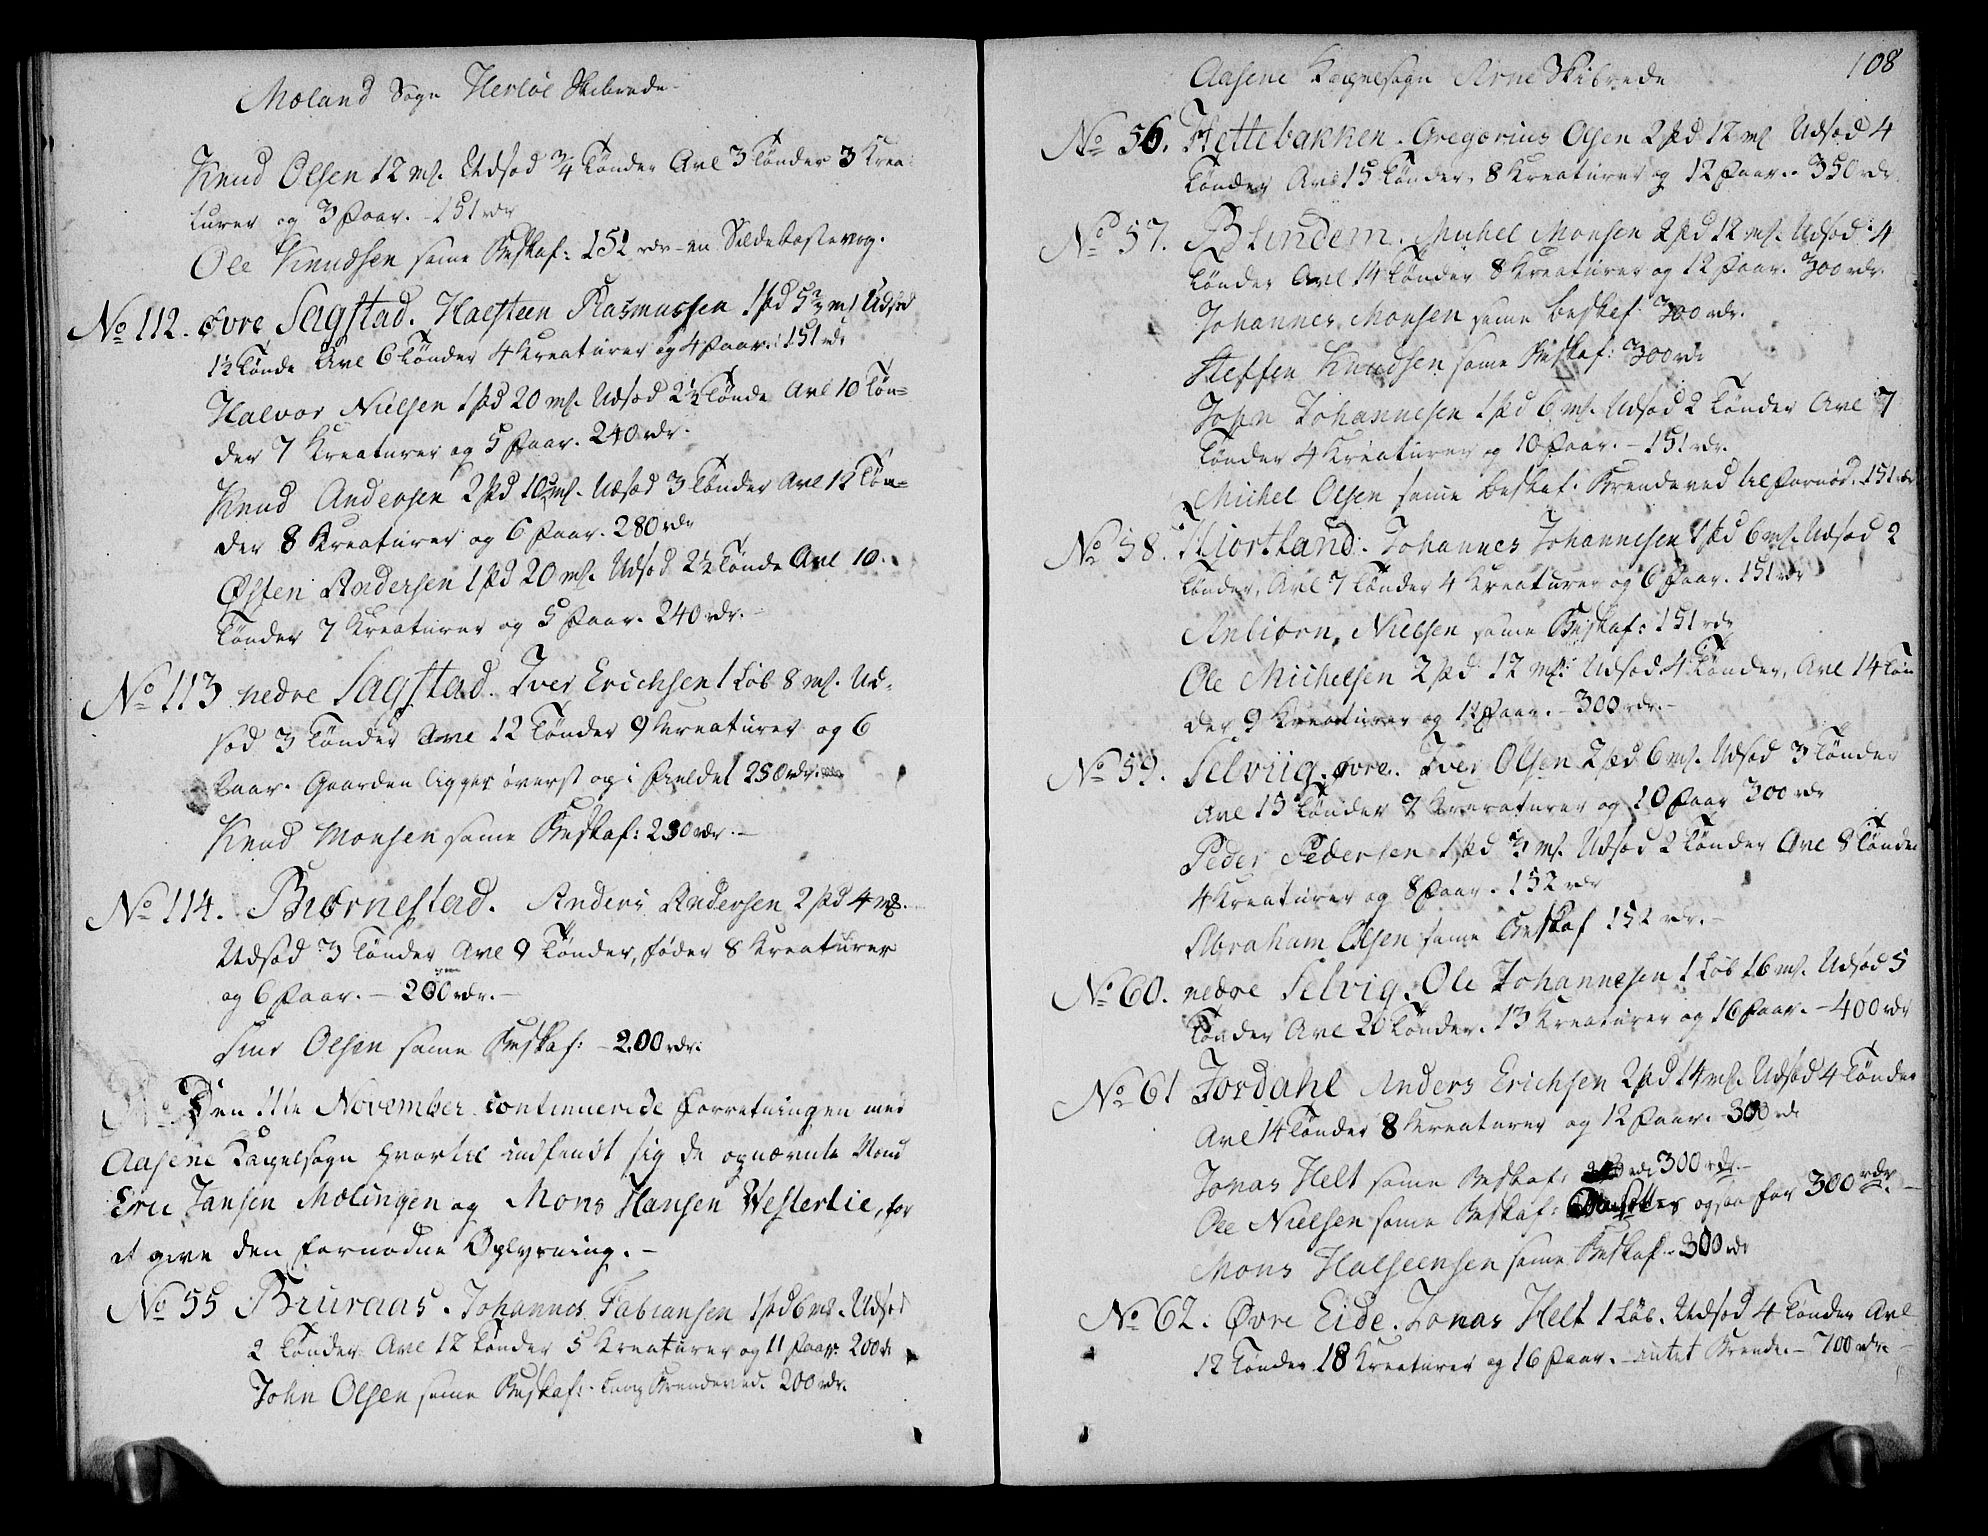 Mæland Sogn Herløe Skibrede
Knud Olsen 12 mk. Udsæd 3/4 Tønder Avl 3 Tønder 3 Krea-
turer og 3 Faar. - 151 rdr
Ole Knudsen same Beskaf: 151 rdr - en Sildekastevog.
No 112. øvre Sagstad. Halsteen Rasmussen 1 pd 5 1/2 mk Udsæd
1 1/2 Tønde Avl 6 Tønder 4 Kreaturer og 4 Faar. 151 rd
Halvor Nielsen 1 pd 20 mk. Udsæd 2 1/2 Tønde Avl 10 Tøn-
der 7 Kreaturer og 5 Faar. 240 rdr.
Knud Andersen 2 pd 10 mk. Udsæd 3 Tønder Avl 12 Tøn-
der 8 Kreaturer og 6 Faar. 280 rdr
Østen Andersen 1 pd 20 mk. Udsæd 2 1/2 Tønde Avl 10
Tønder 7 Kreaturer og 5 Faar. 240 rdr. -
No 113 nedre Sagstad. Iver Erichsen 1 Løb 8 mk. Ud-
sæd 3 Tønder Avl 12 Tønder 9 Kreaturer og 6
Faar. Gaarden ligger øverst op i Fieldet 250 rdr.
Knud Monsen same Beskaf: 250 rdr. -
No 114. Biørnestad. Anders Andersen 2 pd 4 mk.
Udsæd 3 Tønder Avl 9 Tønder, føder 8 Kreaturer
og 6 Faar. - 200 rdr. -
Siur Olsen same Beskaf: - 200 rdr.
Den 11te November continuerede Forretningen med
Aasene Capelsogn hvortil indfandt sig de opnævnte Mænd
Eric Jansen Mælingen og Mons Hansen Westerlie, for
at give den fornødne Oplysning. -
No 55 Bruraas. Johannes Fabiansen 1 pd 6 mk. Udsæd
2 Tønder Avl 12 Tønder 5 Kreaturer og 11 Faar. 200 rd
John Olsen same Beskaf: - Brendeved. 200 rdr.
108
Aasene Capelsogn Arne Skibrede
No 56. Hettebakken. Gregorius Olsen 2 pd 12 mk Udsæd 4
Tønder Avl 15 Tønder, 8 Kreaturer og 12 Faar. 350 rdr
No 57. Blindem. Michel Monsen 2 pd 12 mk. Udsæd 4
Tønder Avl 14 Tønder 8 Kreaturer og 12 Faar. 300 rdr.
Johannes Monsen same beskaf: 300 rdr.
Steffen Knudsen same Beskaf: 300 rdr
John Johannesen 1 pd 6 mk. Udsæd 2 Tønder Avl 7
Tønder 4 Kreaturer og 10 Faar. - 151 rdr.
Michel Olsen same beskaf: Brendeved til Fornød. 151 rdr
No 58. Hiortland. Johannes Johannesen 1 pd 6 mk. Udsæd 2
Tønder, Avl 7 Tønder 4 Kreaturer og 6 Faar. 151 rdr
Anbiørn Nielsen same Beskaf: 151 rdr
Ole Michelsen 2 pd 12 mk. Udsæd 4 Tønder, Avl 14 Tøn
der 9 Kreaturer og 12 Faar. - 300 rdr. -
No 59. Selviig øvre. Iver Olsen 2 pd 6 mk. Udsæd 3 Tønder
Avl 15 Tønder 7 Kreaturer og 10 Faar 300 rdr
Peder Pedersen 1 pd 3 mk. Udsæd 2 Tønder Avl 8 Tønder
4 Kreaturer og 8 Faar. 152 rdr
Abraham Olsen same Beskaf 152 rdr. -
No 60. nedre Selvig. Ole Johannesen 1 Løb 16 mk. Udsæd 5
Tønder Avl 20 Tønder. 13 Kreaturer og 16 Faar. - 400 rdr
No 61 Jordahl Anders Erichsen 2 pd 14 mk. Udsæd 4 Tønder
Avl 14 Tønder 8 Kreaturer og 12 Faar. 300 rd
Jonas Helt same Beskaf: 300 rdr. -
Ole Nielsen same Beskaf: ogsaa for 300 rdr. -
Mons Halsteensen same Beskaf - 300 rdr
No 62. Øvre Eide. Jonas Helt 1 Løb. Udsæd 4 Tønder Avl
12 Tønder 18 Kreaturer og 16 Faar. - intet Brende. - 700 rdr. -